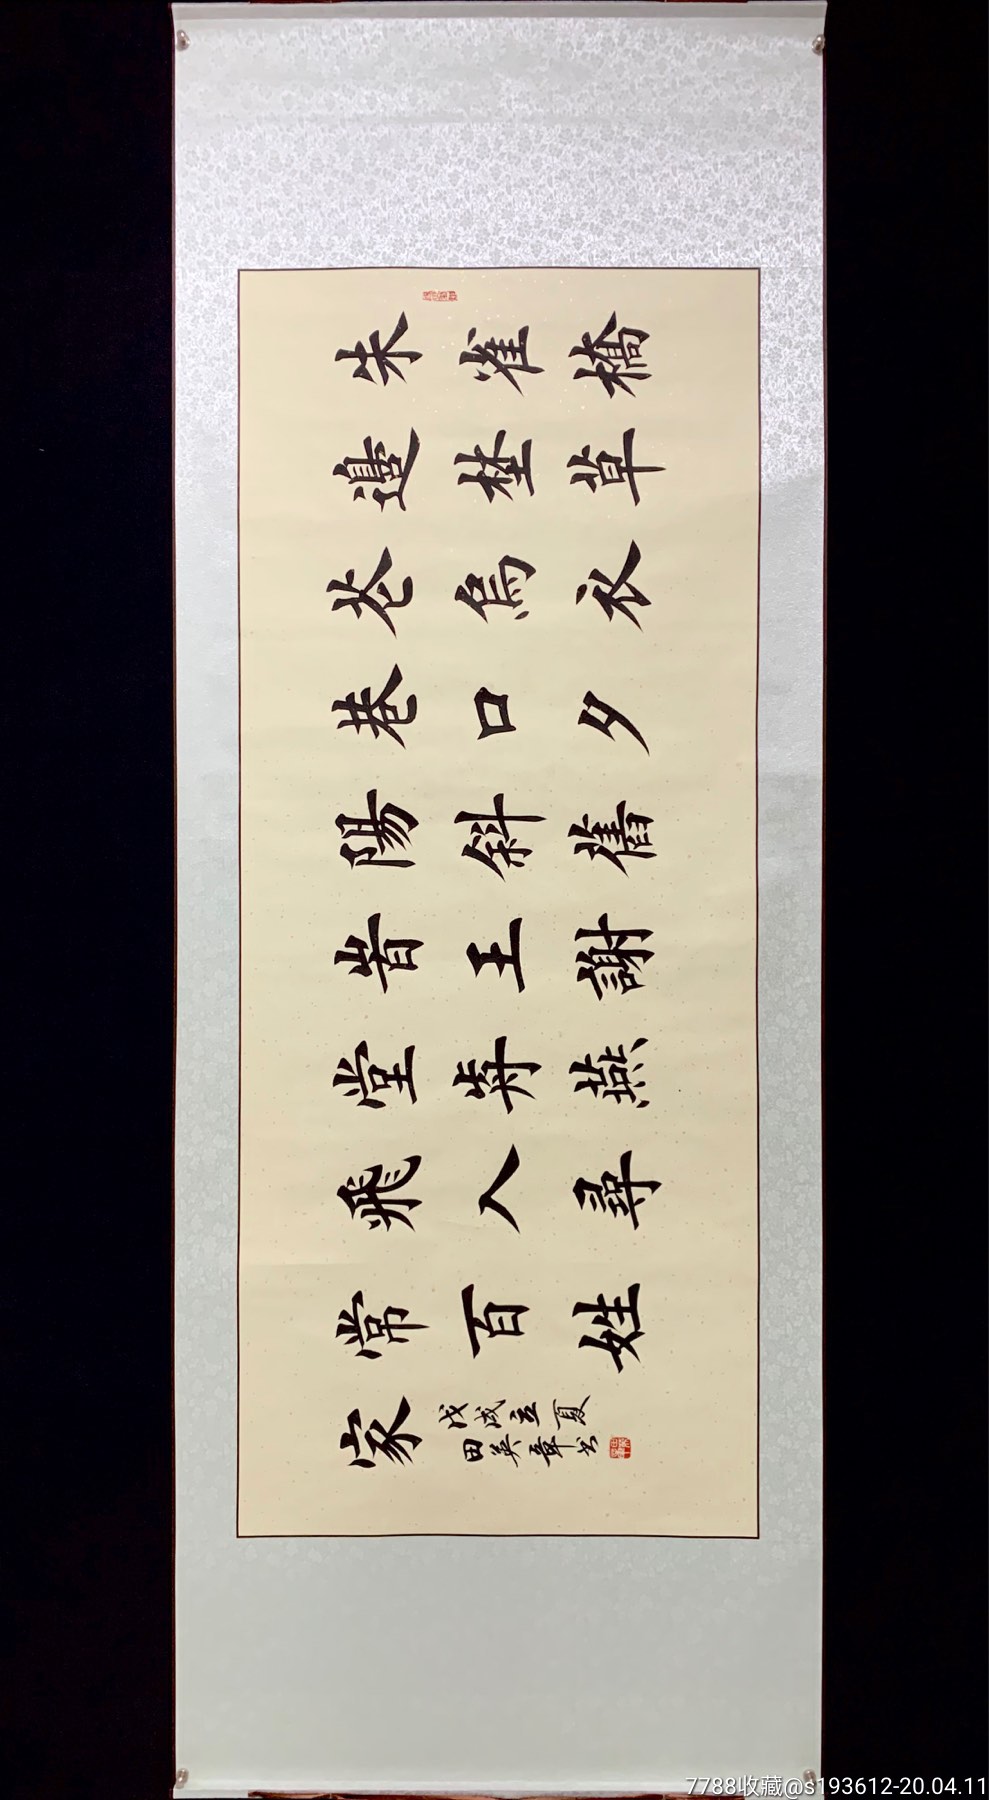 朱雀橋
邊埜草
花烏衣
巷口夕
陽斜舊
旹王謝
堂歬燕
飛入尋
常百姓
家
戊戌立夏
田英章书
7788收藏@s193612-20.04.11